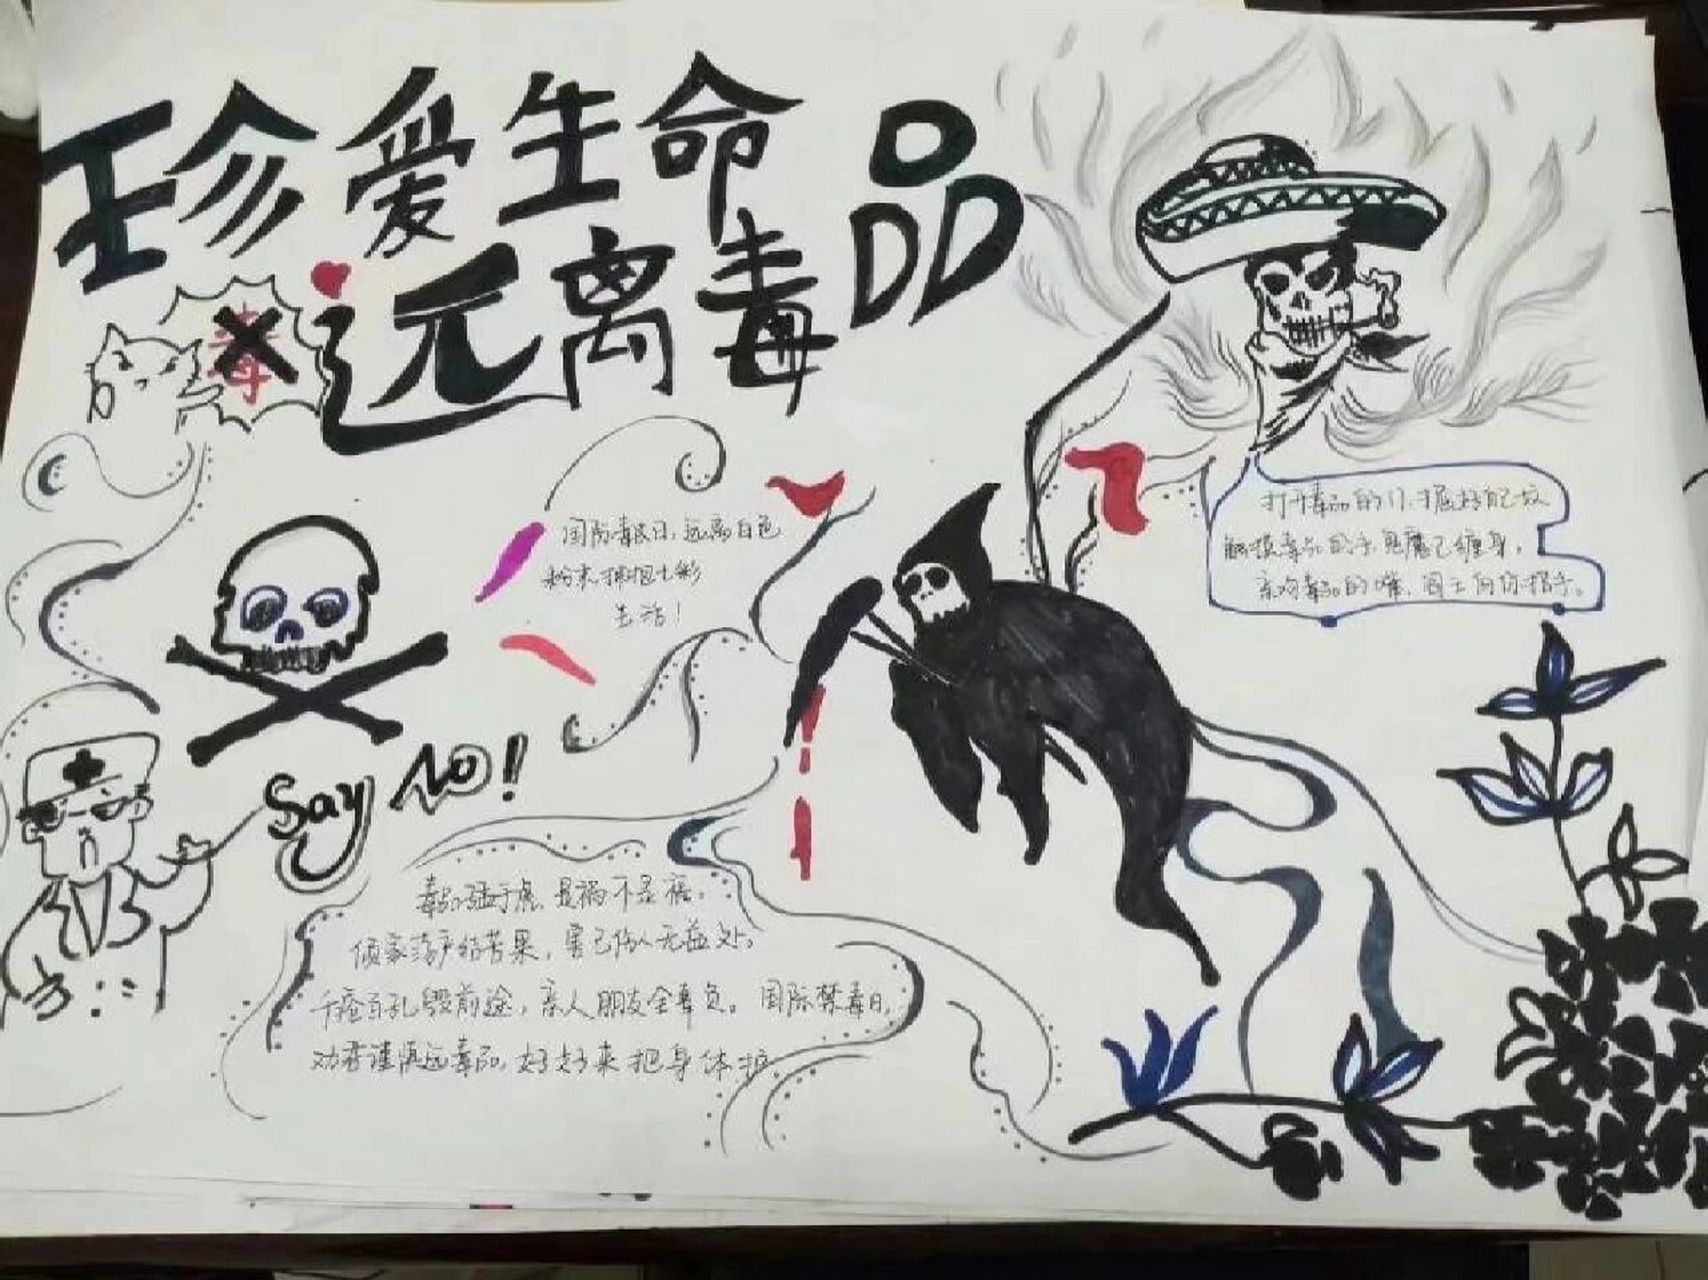 珍爱生命
远离毒品
毒
国际毒日,远离白色
粉末拥抱七彩
生活!
打开毒品的门,掘好自己坟
触摸毒品的手,鬼魔已缠身,
亲吻毒品的嘴,阎王向你招手。
Say NO!
毒品猛于虎,是祸不是福。
倾家荡产结苦果,害己伤人无益处。
千疮百孔毁前途,亲人朋友全辜负。国际禁毒日,
劝君谨慎远毒品,好好来把身体护